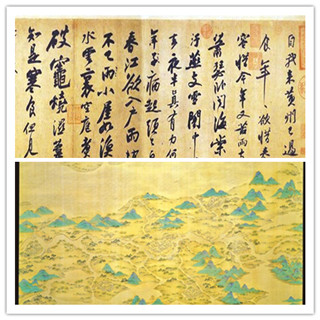 自我來黃州已過
食年欲惜春
容惜今年又苦雨兩
蕭瑟卧聞海棠
汙燕支雪闇中
去夜半真有力何
年子病起頭已
春江欲入戶雨勢
不已雨小屋如漁
水雲裏空庖煮
破竈燒濕葦
知是寒食但見